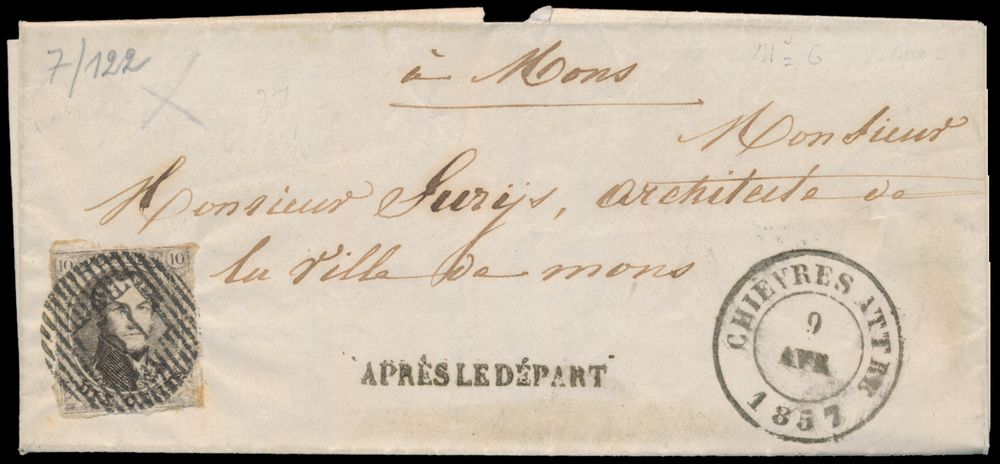 7/122
à Mons
Monsieur
Monsieur Surys, architecte de
la ville de mons
10 10
APRÈS LE DÉPART
CHIEVRES ATTRE
9
AVR
1857